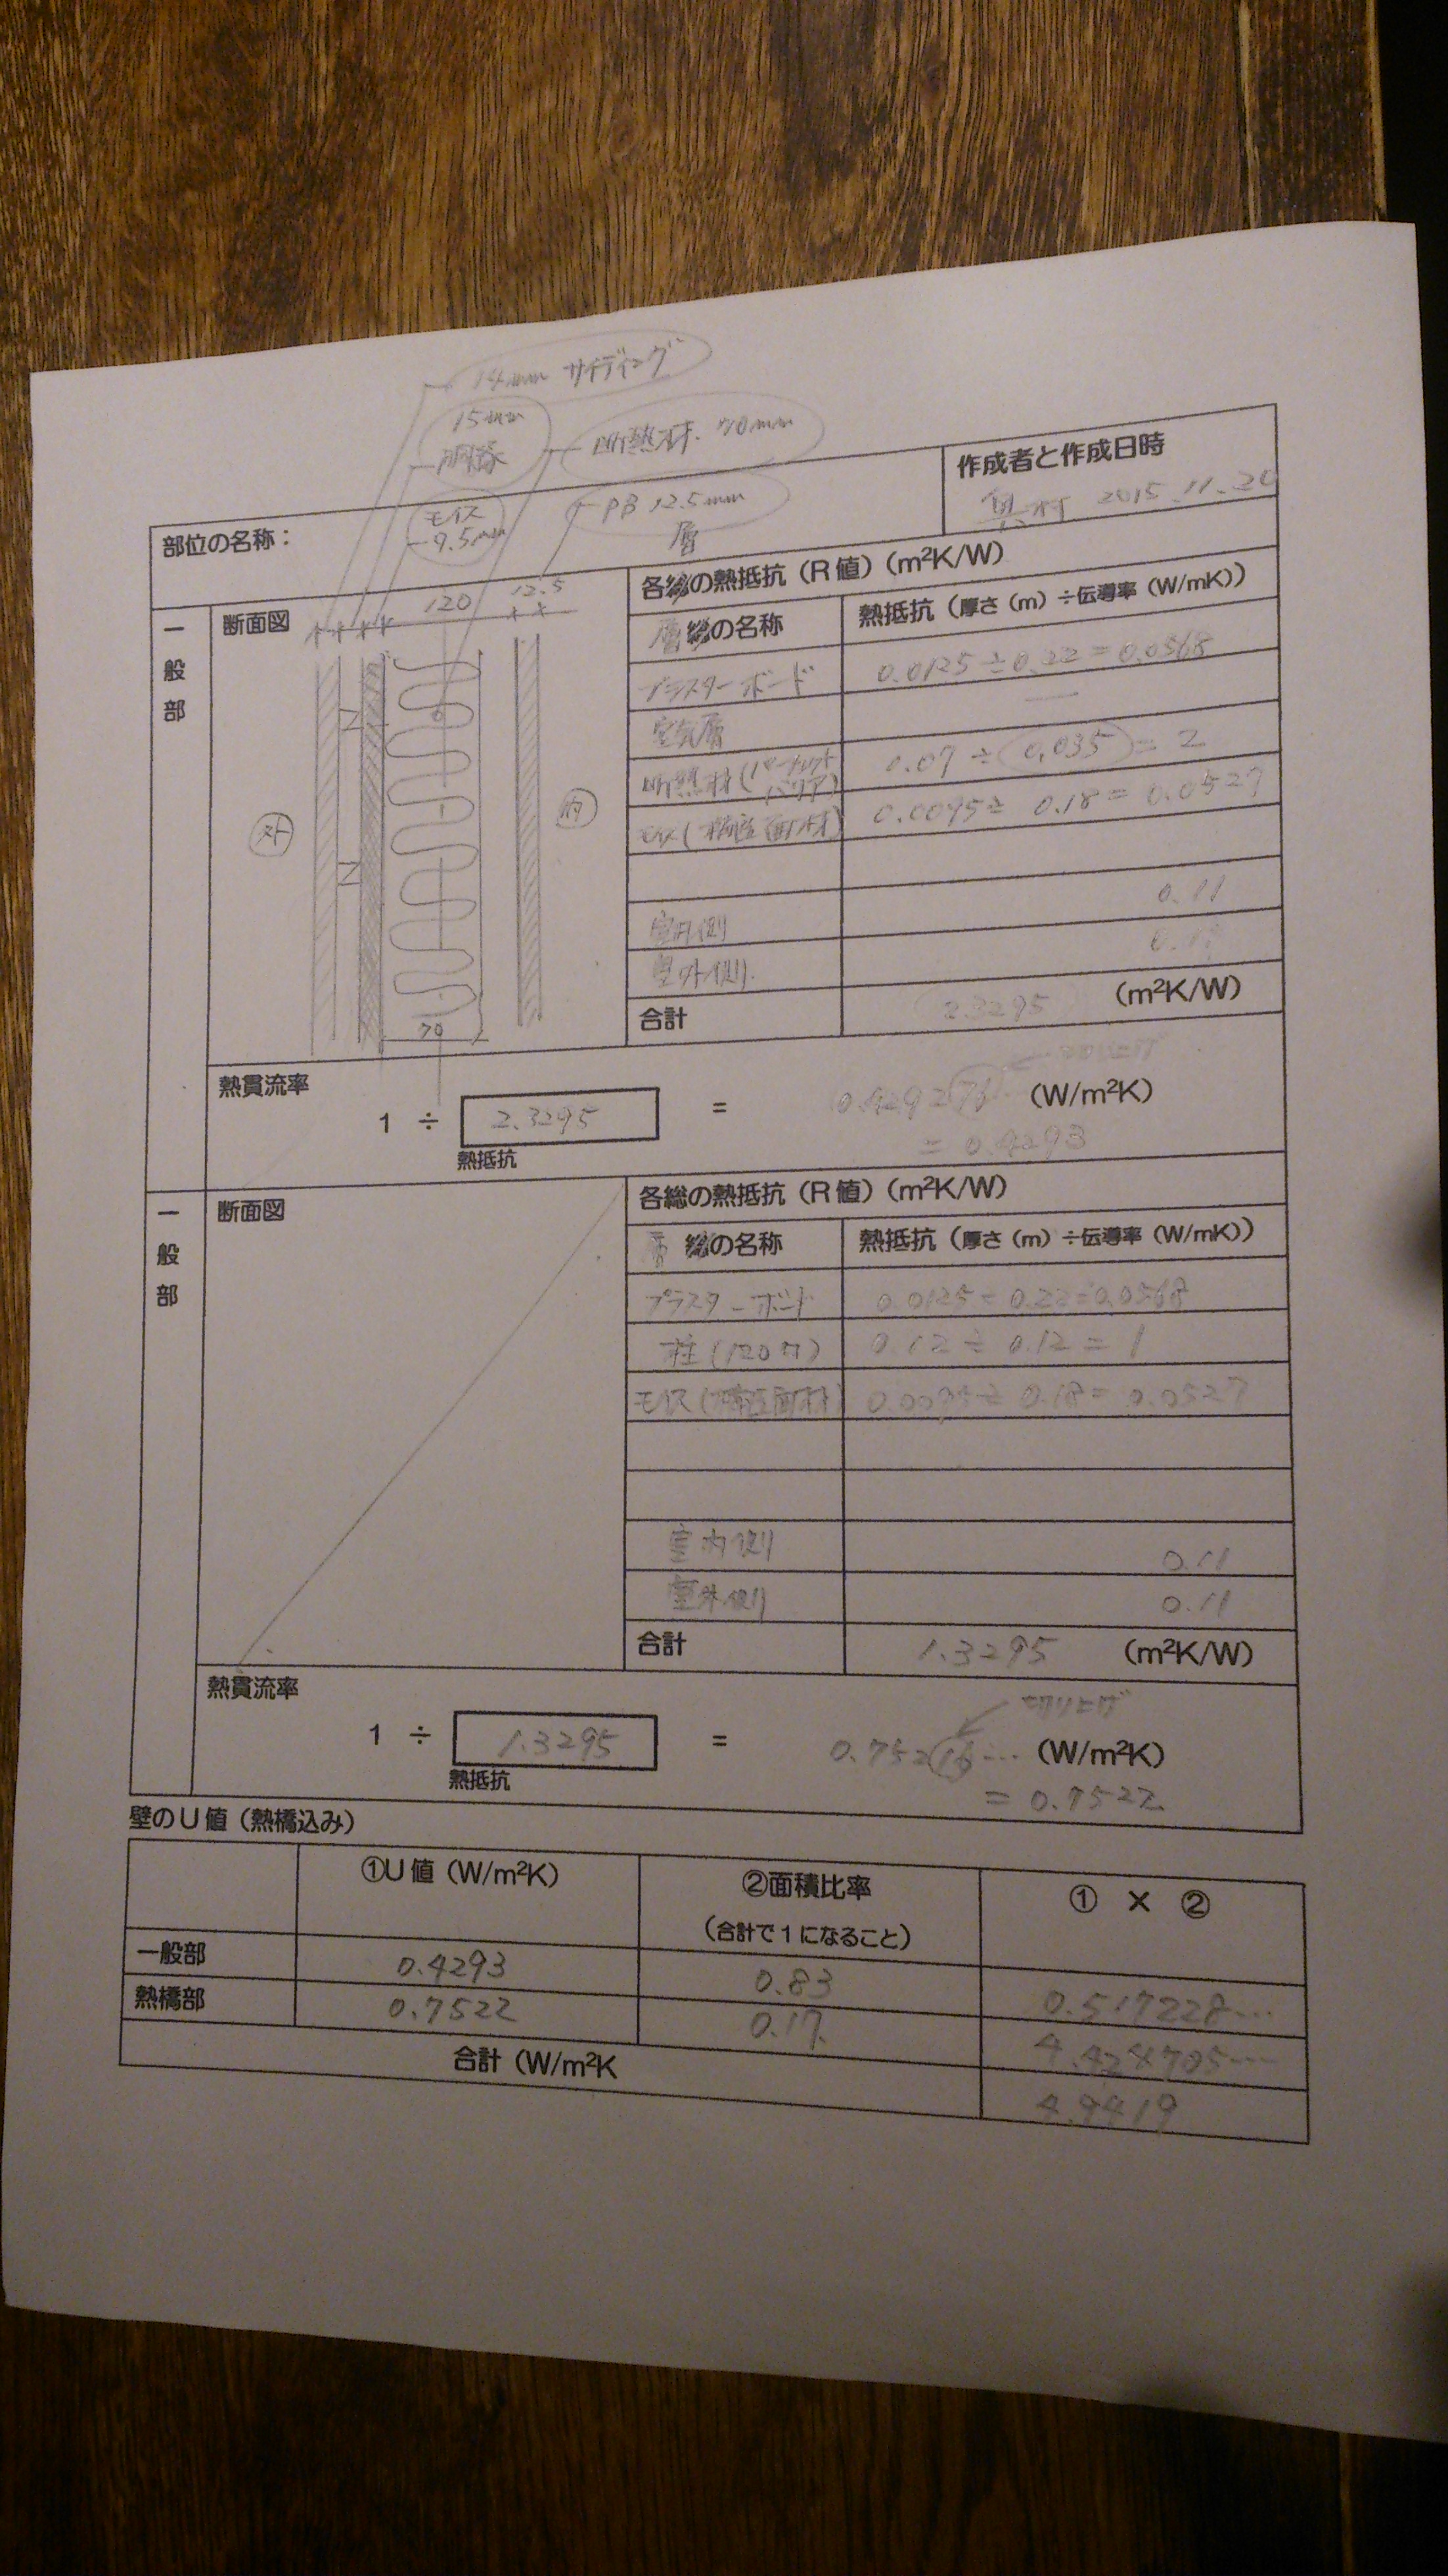 14mm サイディング
15mm
胴縁
断熱材 70mm
モイス
9.5mm
PB 12.5mm
部位の名称：
作成者と作成日時
奥村 2015.11.20
層
各総の熱抵抗（R値）(m²K/W)
一般部
断面図
120
12.5
層 総の名称
熱抵抗（厚さ（m）÷伝導率（W/mK））
プラスターボード
0.0125÷0.22=0.0568
空気層
—
断熱材(パーフェクトバリア)
0.07÷0.035=2
モイス(構造面材)
0.0095÷0.18=0.0527
外
内
室内側
0.11
室外側
0.11
70
合計
2.3295
(m²K/W)
熱貫流率
1 ÷ 2.3295 = 0.429276 (W/m²K)
熱抵抗
= 0.4293
一般部
断面図
各総の熱抵抗（R値）(m²K/W)
層 総の名称
熱抵抗（厚さ（m）÷伝導率（W/mK））
プラスターボード
0.0125÷0.22=0.0568
柱(120カ)
0.12÷0.12=1
モイス(構造面材)
0.0095÷0.18=0.0527
室内側
0.11
室外側
0.11
合計
1.3295
(m²K/W)
熱貫流率
切り上げ
1 ÷ 1.3295 = 0.75216… (W/m²K)
熱抵抗
= 0.7522
壁のU値（熱橋込み）
①U値（W/m²K）
②面積比率
（合計で1になること）
① × ②
一般部
0.4293
0.83
0.517228…
熱橋部
0.7522
0.17
4.424705…
合計（W/m²K
4.9419